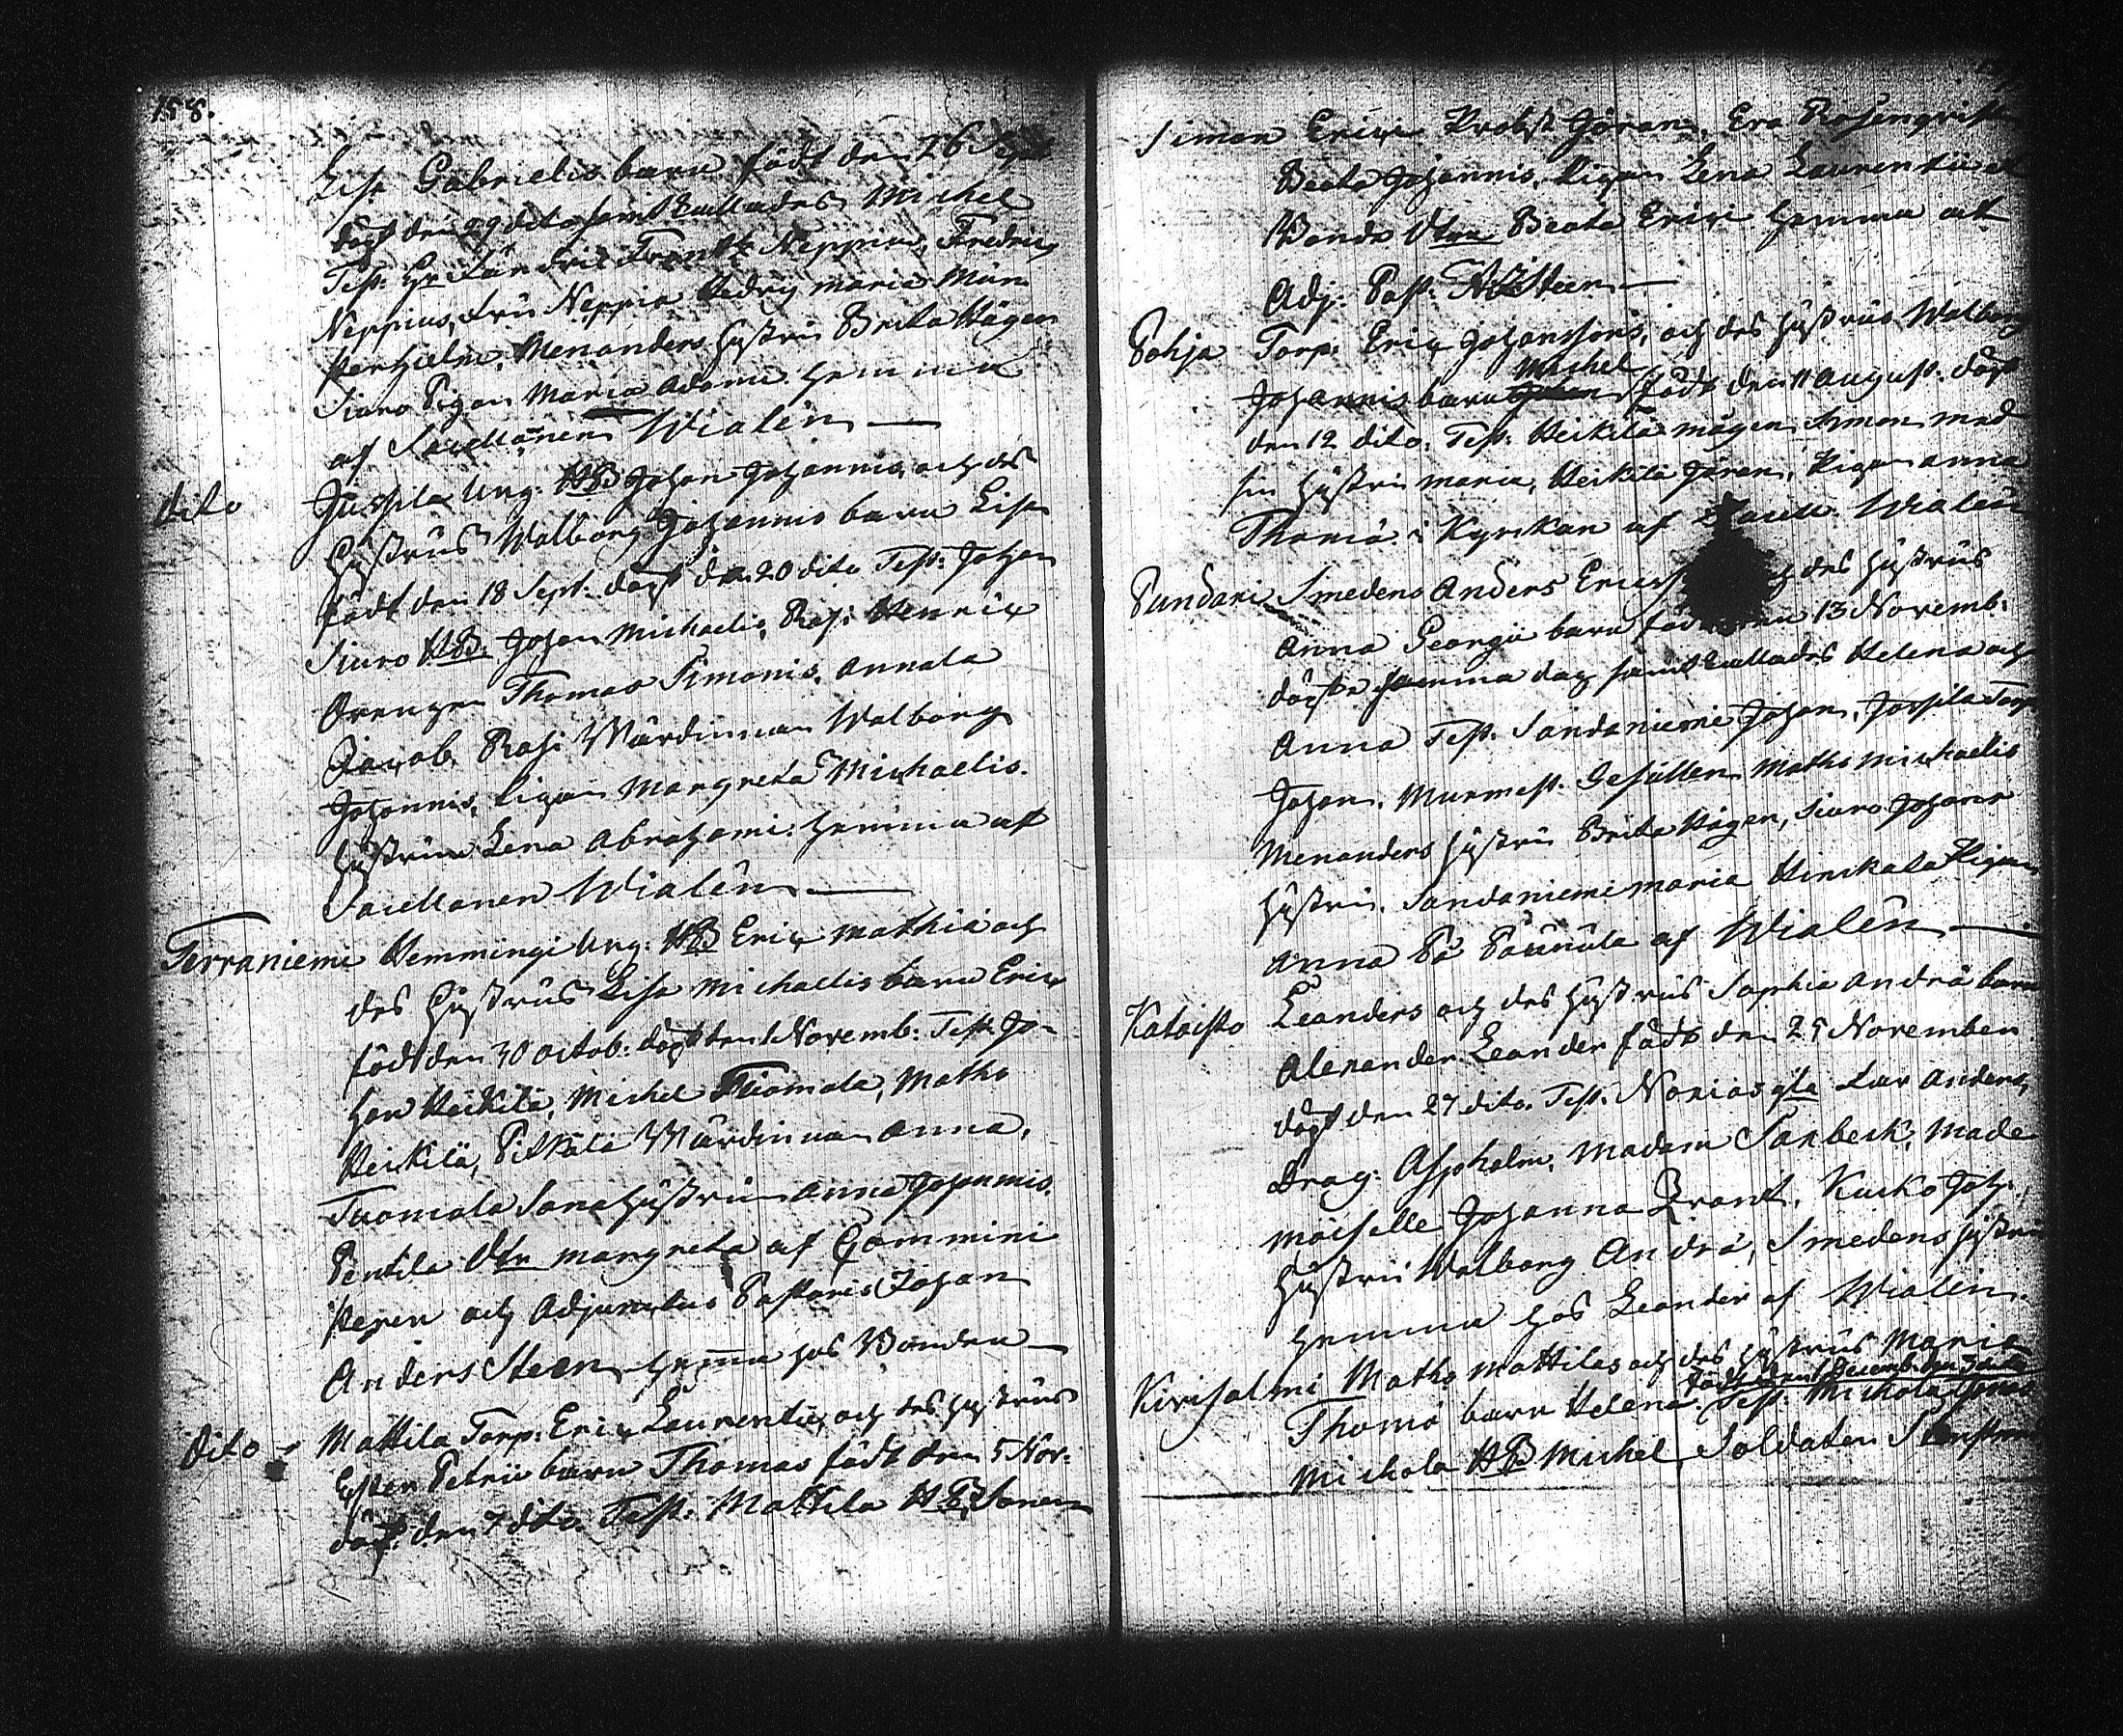 158.
Lisa Gabrielis barn född den 26 Sept
döpt den 29 dito samt kallades Michel
Test: Hr Neppius, Fredric
Neppius, Fru Neppia Hedvig Maria Mün
sterhielm, Menanders hystru Brita Hägen
Siuro Pigan Maria Adami hemma
af Sacellanen Wialén
dito Jussila Ung: HB Johan Johannis och des
hystrus Walborg Johannis barn Lisa
född den 18 Sept: döpt den 20 dito Test: Johan
Siuro HB: Johan Michaelis, Rasi Henric
Drengen Thomas Simonis, Annala
Jacob, Rasi Wärdinnan Walborg
Johannis, Pigan Margreta Michaelis.
hystrun Lena Abrahami. hemma af
Sacellanen Wialén
Terraniemi Hemmingi Ung: HB Eric Mathiæ och
des hystrus Lisa Michaelis barn Eric
född den 30 Octob: döpt den 1 Novemb: Test: Jo-
han Heikilä, Michel Tuomala, Maths
Heikilä, Pitkälä Wärdinnan Anna,
Tuomala Sona hystrun Anna Johannis.
Pentila Dtr Margreta af Commini
steren och Adjunctus Pastoris Johan
Anders Steen hemma hos Bonden
Dito Mattila Torp: Eric Laurentii och des hystrus
Ester Petrii barn Thomas född den 5 Nov:
döpt den 7 dito. Test: Mattila HB Sonen
Simon Erici Probst Jöran, Eva Rosenqvist
Beata Johannis, Pigan Lena Laurentii et
Bonde Dtra Beata Erici hemma at
Adj: Past: Steen
Pohja Torp: Eric Johanssons, och des hystrus Walborg
Michel
Johannis barn Johan född den 11 August. döpt
den 12 dito. Test: Heikilä mågen Simon med
sin hystru Maria, Heikilä Jöran, Pigan Anna
Thomæ i Kyrkan af Sacell: Wialén
Pundari Smedens Anders Ericss des hystrus
Anna Georgii barn föd den 13 Novemb:
döpte samma dag samt kallades Helena och
Anna Test. Sandaniemi Johan, Jussila Torp
Johan, Murmest. Gesällen Maths Michaelis
Menanders hystru Brita Hägen, Siuro Johans
hystru. Sandaniemi Maria Hirskala Pigan
Anna På Pånnula af Wialén
Kataisto Leanders och des hystrus Sophia Andræ barn
Alexander Leander född den 25 November
döpt den 27 dito. Test. Anders,
Drag: Aspholm, Madam Tanbeck, Made
moiselle Johanna Brant. Kuiko Joh.
hystru Walborg Andræ, Smedens hystru
hemma hos Leander af Wialén.
Kirisalmi Maths Mattilas och des hystrus Maria
född den 1 Decemb. den 3 dito
Thomæ barn Helena. Test: Michola Jöran
Michola HB Michel Soldaten Stenström